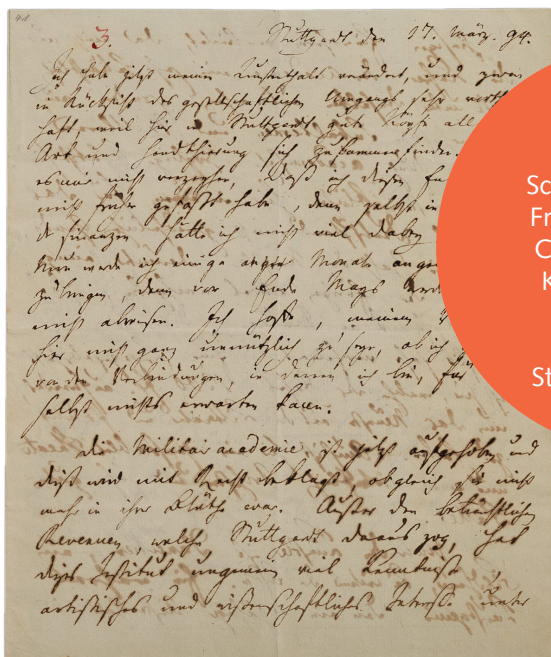 3.
Stuttgardt den 17. März. 94.
Ich habe jetzt meinen Aufenthalt verändert, und zwar
in Rücksicht des gesellschaftlichen Umgangs sehr vorth
haft, weil hier in Stuttgardt gute Köpfe all
Art und Handthierung sich zusammenfinden.
es mir nicht verzeyhen, daß ich diesen En
nicht früher gefaßt habe, denn selbst in
der Finanzen hätte ich nicht viel dabey
Nun werde ich einige Monate
zubringen, denn vor Ende Mays werd
nicht abreisen. Ich hoffe, meinem
hier nicht ganz unnützlich zu seyn, ob ich
von den Verbindungen, in denen ich bin, für
selbst nichts erwarten kann.
Die Militäracademie ist jetzt aufgehoben und
diß wird mit Recht beklagt, obgleich sie nicht
mehr in ihrer Blüthe war. Außer den beträchtlichen
Revenuen, welche Stuttgardt daraus zog, hat
dieses Institut ungemein viel Kenntnisse,
artistisches und wissenschaftliches Interesse unter
Sc
Fr
C
K
St